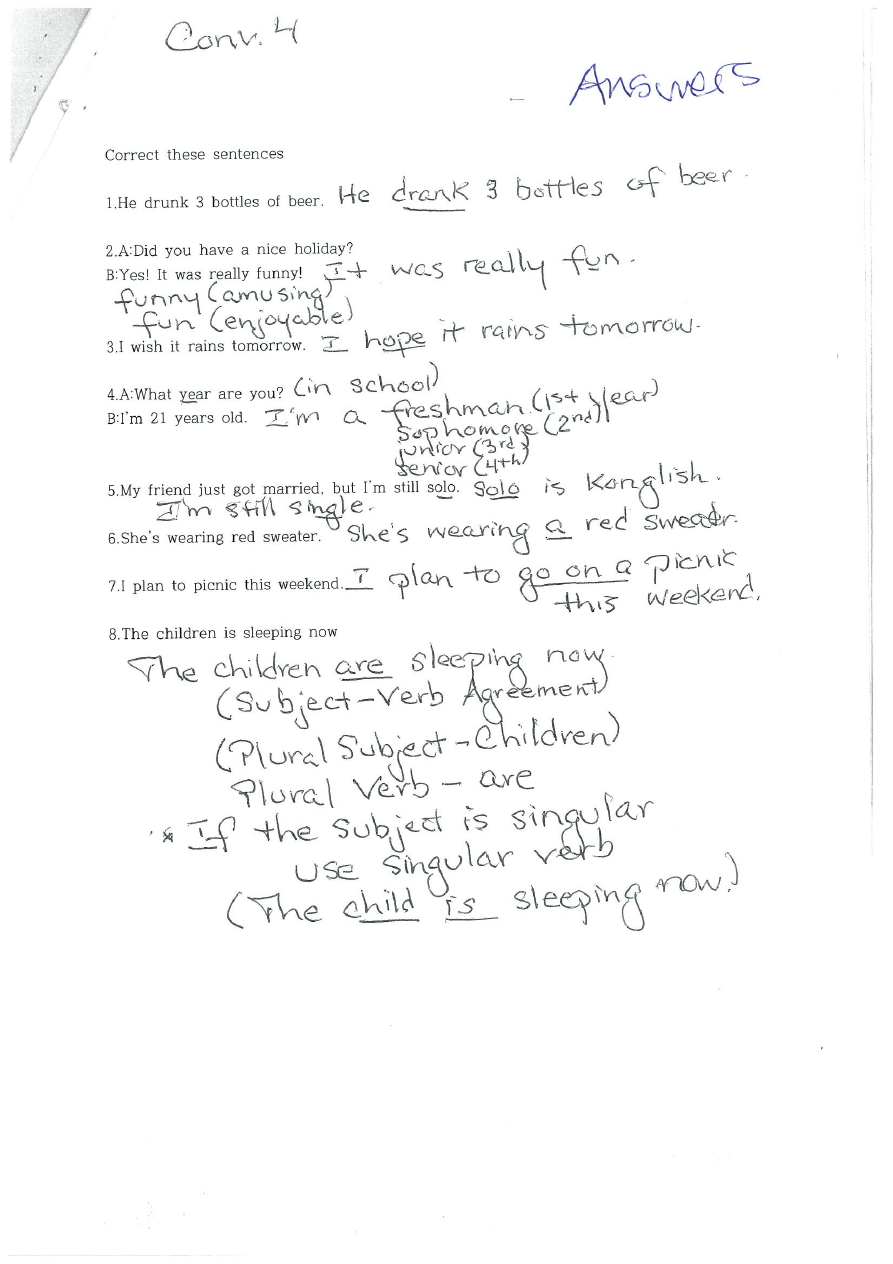 Conv. 4
Answers
Correct these sentences
1.He drunk 3 bottles of beer. He drank 3 bottles of beer.
2.A:Did you have a nice holiday?
B:Yes! It was really funny! It was really fun.
funny (amusing)
fun (enjoyable)
3.I wish it rains tomorrow. I hope it rains tomorrow.
4.A:What year are you? (in school)
B:I'm 21 years old. I'm a freshman (1st year)
Sophomore (2nd)
junior (3rd)
senior (4th)
5.My friend just got married, but I'm still solo. Solo is Konglish.
I'm still single.
6.She's wearing red sweater. She's wearing a red sweater.
7.I plan to picnic this weekend. I plan to go on a picnic
this weekend.
8.The children is sleeping now
The children are sleeping now.
(Subject-Verb Agreement)
(Plural Subject - Children)
Plural Verb - are
* If the subject is singular
use singular verb
(The child is sleeping now.)